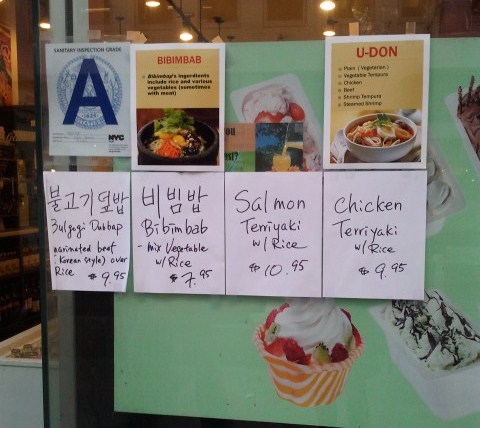 SANITARY INSPECTION GRADE
A
NYC
BIBIMBAB
Bibimbap's ingredients
include rice and various
vegetables (sometimes
with meat)
U-DON
Plain (Vegetarian)
Vegetable Tempura
Chicken
Beef
Shrimp Tempura
Steamed Shrimp
you
불고기덮밥
Bulgogi Dubbap
marinated beef
(Korean style) over
Rice
$9.95
비빔밥
Bibimbab
- Mix Vegetable
w/Rice
$7.95
Salmon
Terriyaki
w/Rice
$10.95
Chicken
Terriyaki
w/Rice
$9.95